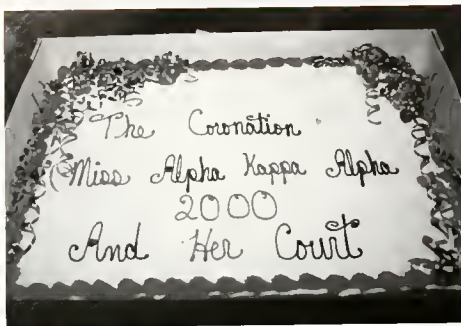 The Coronation
Miss Alpha Kappa Alpha
2000
And Her Court